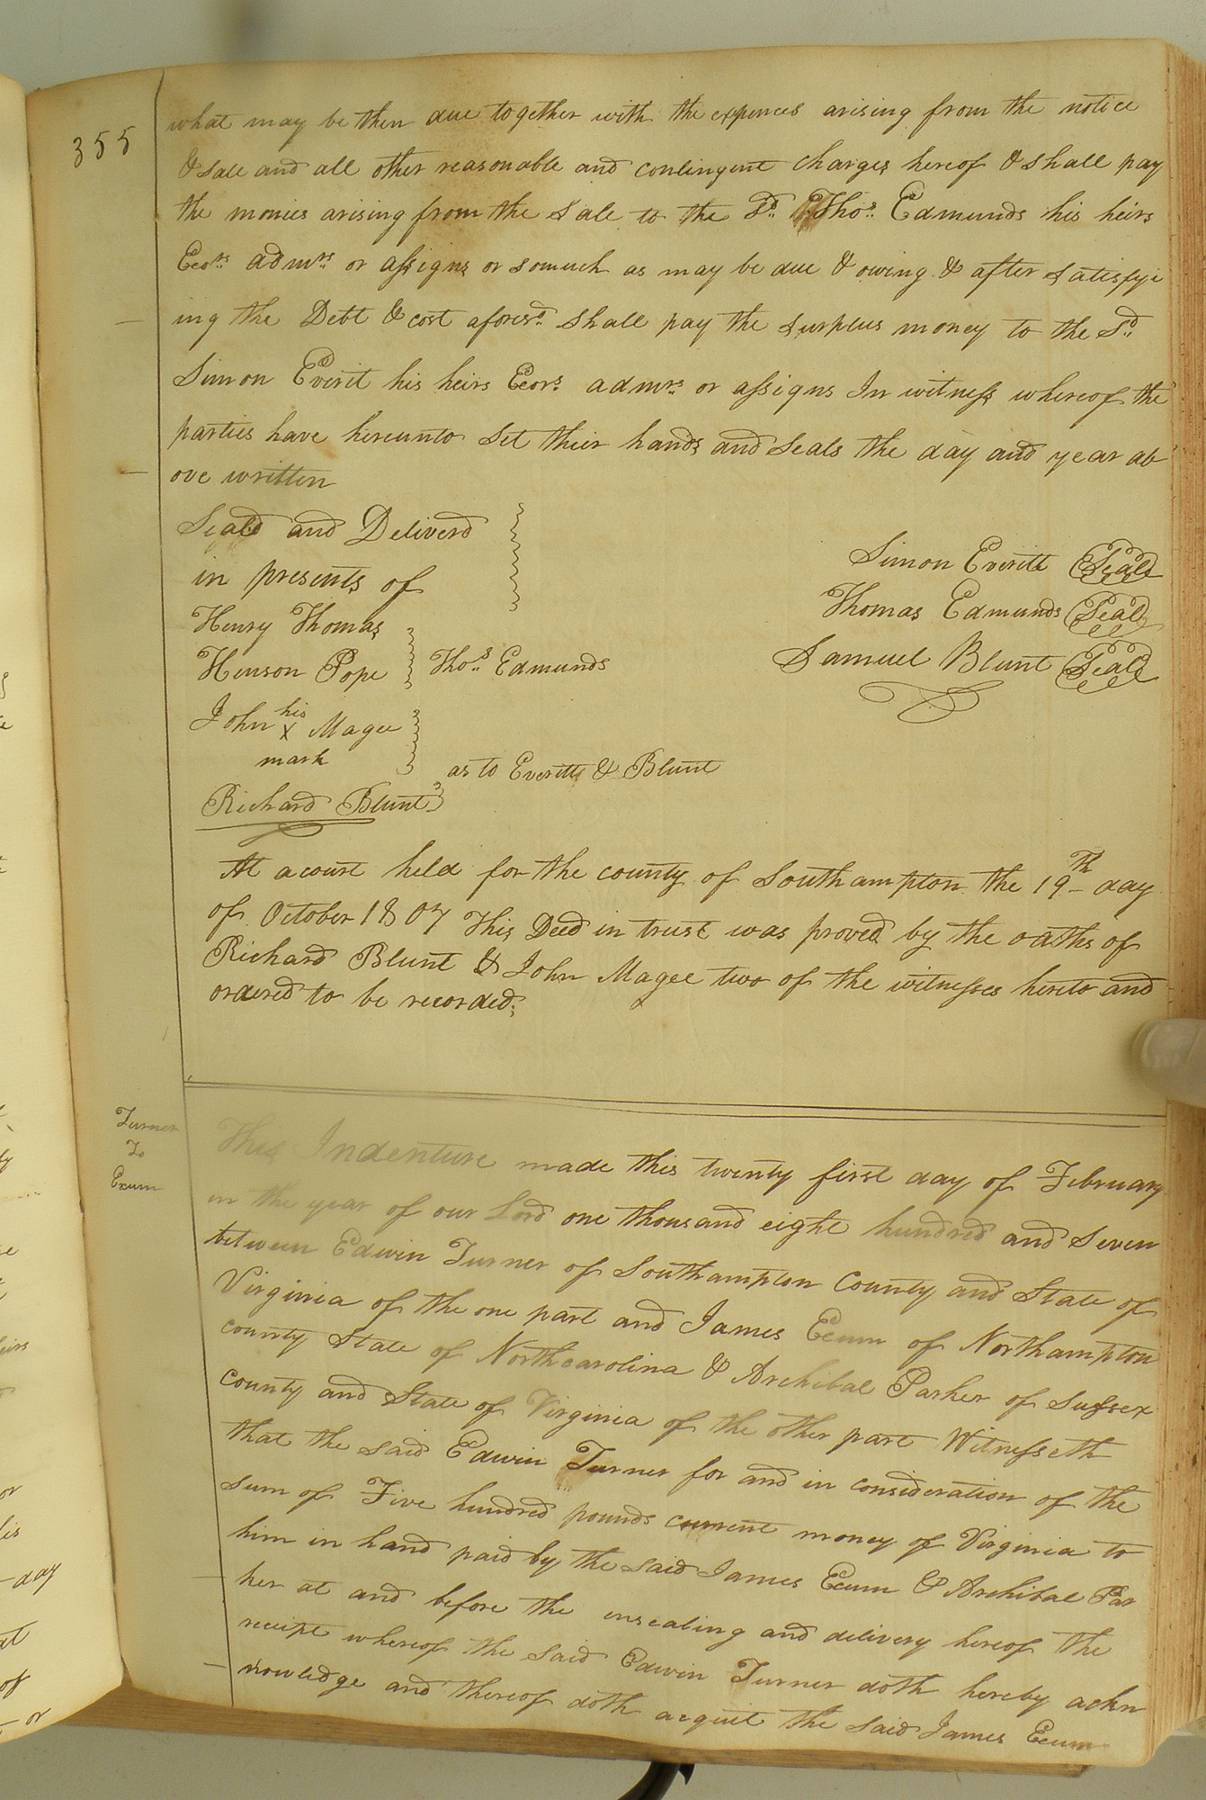 355
what may be then due together with the expences arising from the notice
& sale and all other reasonable and contingent charges hereof & shall pay
the monies arising from the sale to the Sd. Thos. Edmunds his heirs
Ecors. admrs. or assigns or somuch as may be due & owing & after satisfyi
ing the Debt & cost aforesd. shall pay the surplus money to the Sd.
Simon Everit his heirs Ecors. admrs. or assigns In witness whereof the
parties have hereunto set their hands and seals the day and year ab
ove written
Seald and Deliverd
in presents of
Simon Everitt Seald
Henry Thomas
Thomas Edmunds Seald
Henson Pope Thos. Edmunds
Samuel Blunt Seald
John his x Magee
mark
as to Everitt & Blunt
Richard Blunt
At a court held for the county of Southampton the 19th day
of October 1807 This Deed in trust was proved by the oaths of
Richard Blunt & John Magee two of the witnesses hereto and
ordered to be recorded;
Turner
To
Exum
This Indenture made this twenty first day of February
in the year of our Lord one thousand eight hundred and seven
between Edwin Turner of Southampton County and State of
Virginia of the one part and James Ecum of Northampton
county State of Northcarolina & Archibal Parker of Sussex
county and State of Virginia of the other part Witnesseth
that the said Edwin Turner for and in consideration of the
sum of Five hundred pounds current money of Virginia to
him in hand paid by the said James Ecum & Archibal Par
ker at and before the ensealing and delivery hereof the
receipt whereof the said Edwin Turner doth hereby ackn
nowledge and thereof doth acquit the said James Ecum